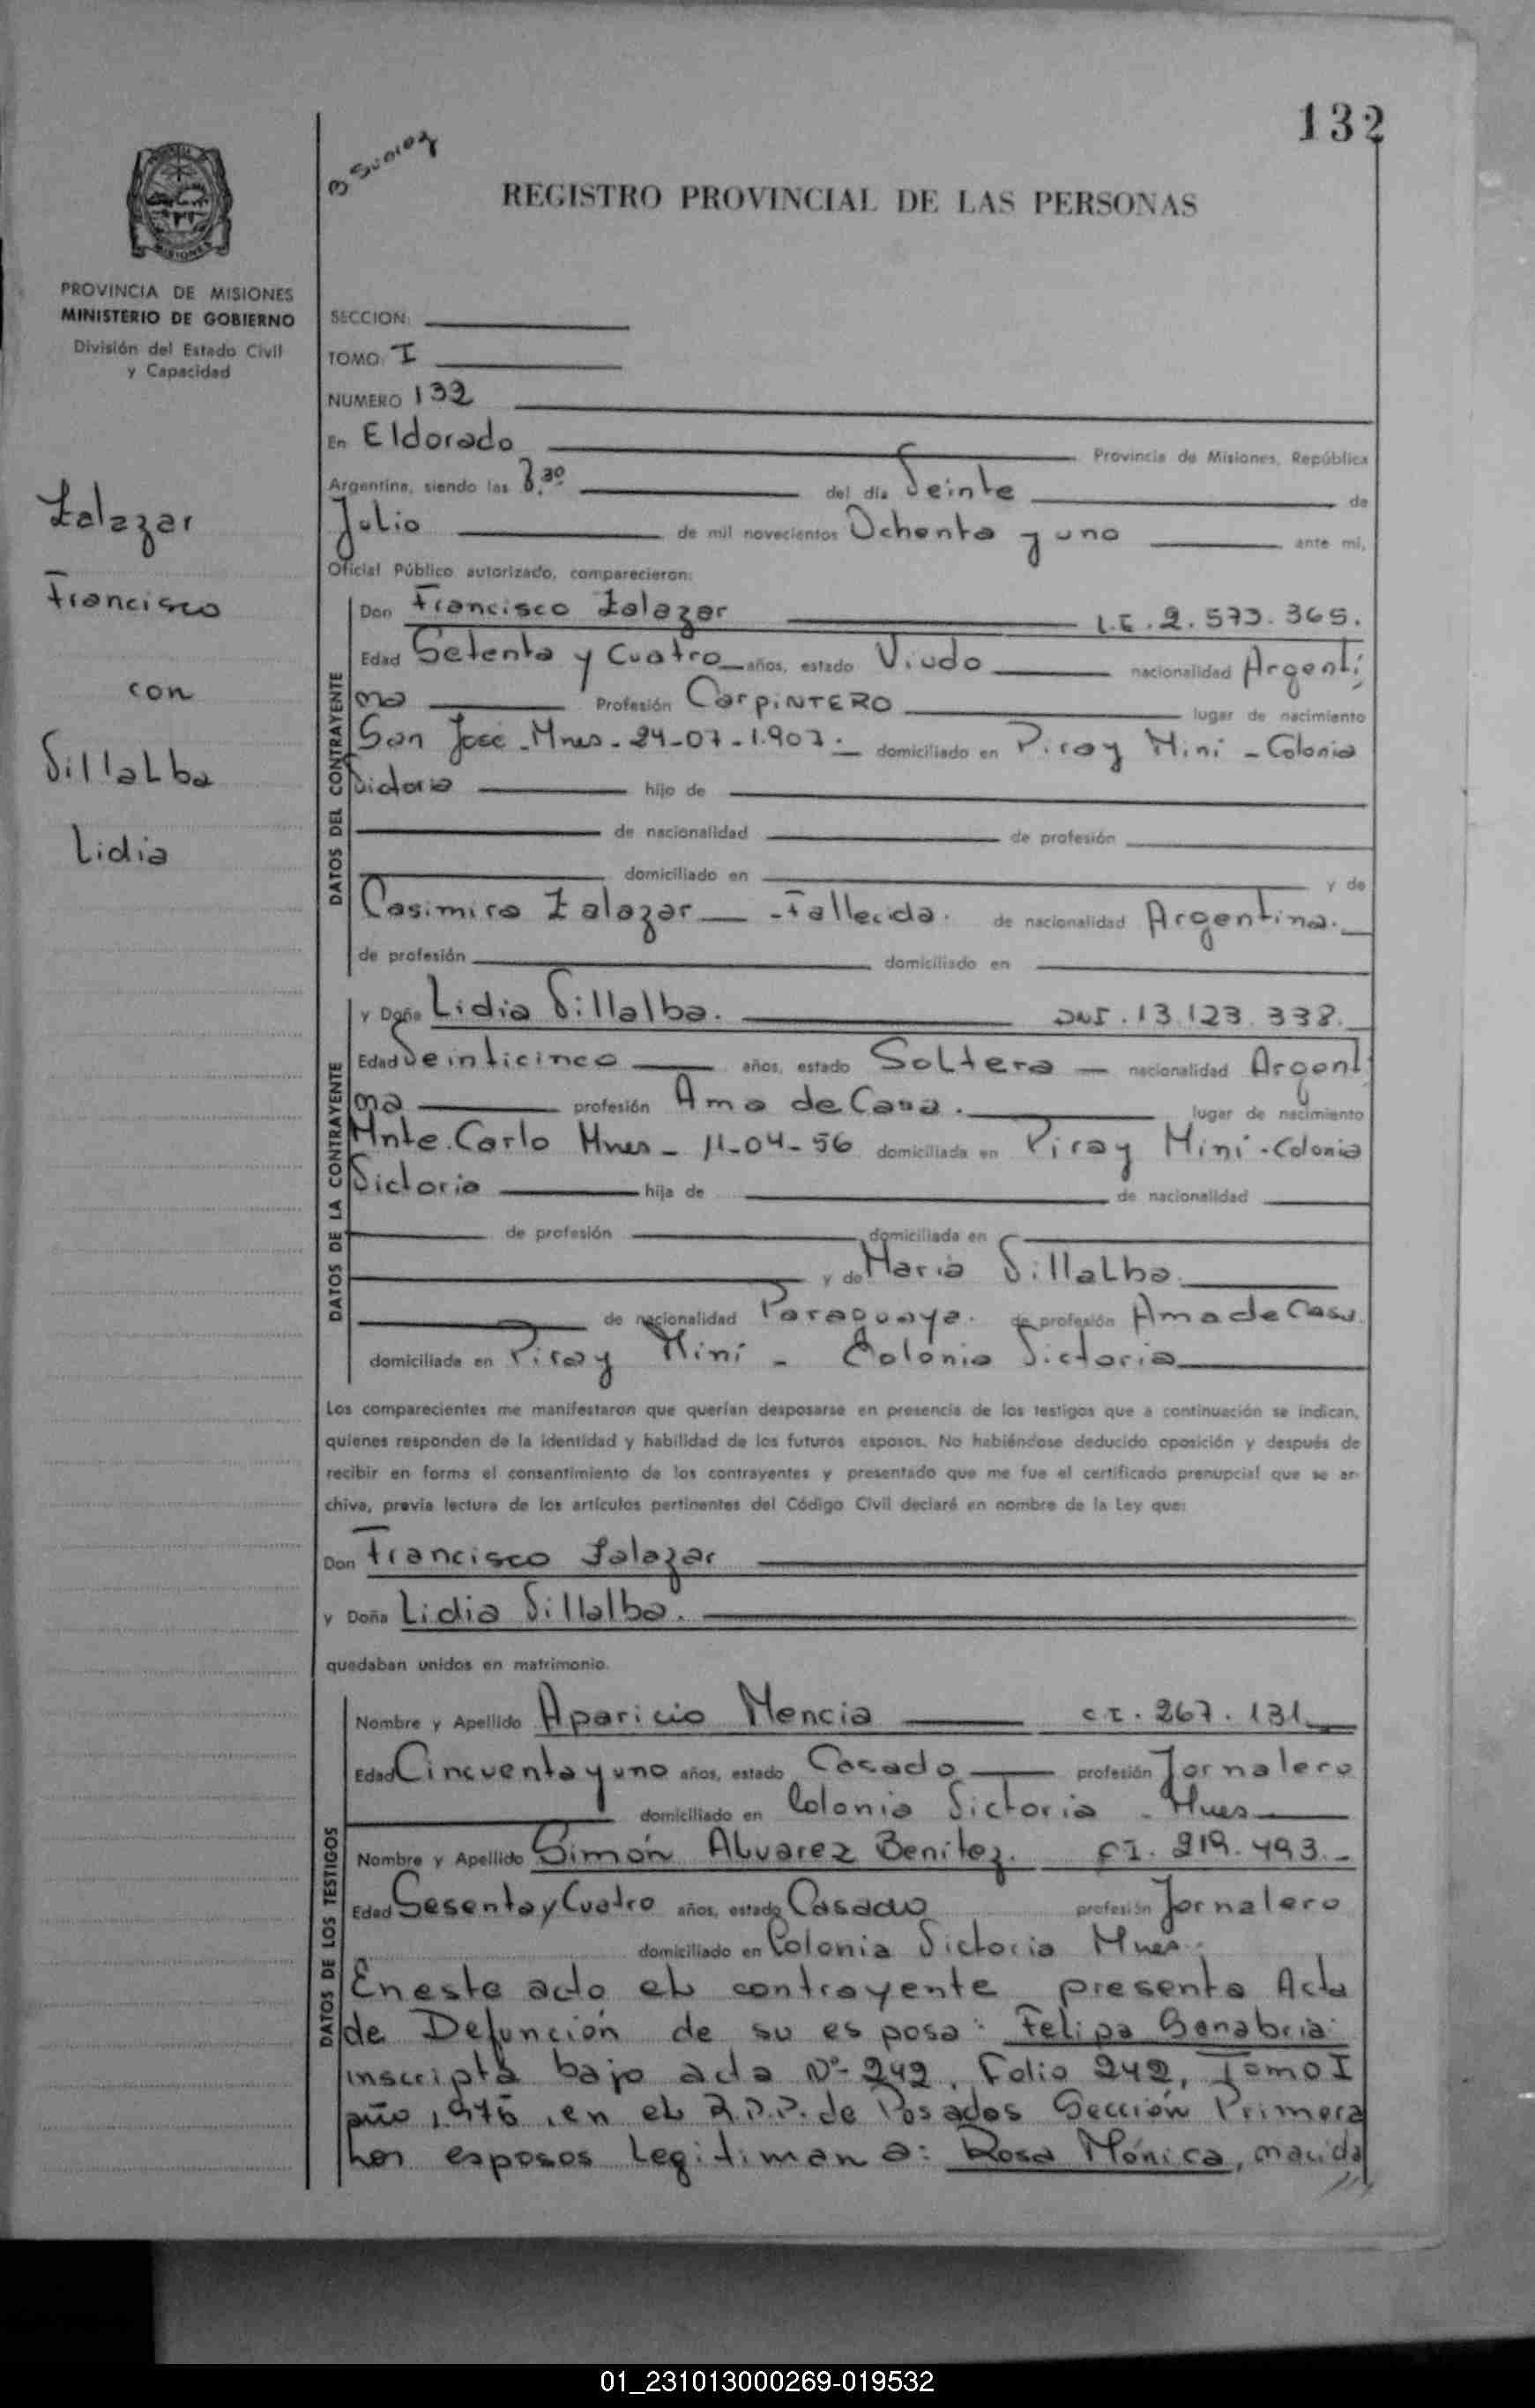 132
REGISTRO PROVINCIAL DE LAS PERSONAS
MISIONES
PROVINCIA DE MISIONES
MINISTERIO DE GOBIERNO
División del Estado Civil
y Capacidad
Zalazar
Francisco
con
Villalba
Lidia
SECCION:
TOMO: I
NUMERO 132
En Eldorado Provincia de Misiones, República
Argentina, siendo las 8,30 del día Veinte de
Julio de mil novecientos Ochenta y uno ante mí,
Oficial Público autorizado, comparecieron:
DATOS DEL CONTRAYENTE
Don Francisco Zalazar L.E. 2.573.365.
Edad Setenta y Cuatro años, estado Viudo nacionalidad Argenti
no Profesión Carpintero lugar de nacimiento
San José - Mnes - 24-07-1.907 domiciliado en Piray Mini - Colonia
Victoria hijo de
de nacionalidad de profesión
domiciliado en y de
Casimira Zalazar - Fallecida. de nacionalidad Argentina.
de profesión domiciliado en
DATOS DE LA CONTRAYENTE
y Doña Lidia Villalba. DNI. 13.123.338.
Edad Veinticinco años, estado Soltera nacionalidad Argenti
na profesión Ama de Casa. lugar de nacimiento
Mnte. Carlo Mnes - 11-04-56 domiciliada en Piray Mini - Colonia
Victoria hija de de nacionalidad
de profesión domiciliada en
y de María Villalba.
de nacionalidad Paraguaya. de profesión Ama de Casa.
domiciliada en Piray Mini - Colonia Victoria
Los comparecientes me manifestaron que querían desposarse en presencia de los testigos que a continuación se indican,
quienes responden de la identidad y habilidad de los futuros esposos. No habiéndose deducido oposición y después de
recibir en forma el consentimiento de los contrayentes y presentado que me fue el certificado prenupcial que se ar-
chiva, previa lectura de los artículos pertinentes del Código Civil declaré en nombre de la Ley que:
Don Francisco Zalazar
y Doña Lidia Villalba.
quedaban unidos en matrimonio.
DATOS DE LOS TESTIGOS
Nombre y Apellido Aparicio Mencia C.I. 267.131
Edad Cincuenta y uno años, estado Casado profesión Jornalero
domiciliado en Colonia Victoria - Mnes
Nombre y Apellido Simón Alvarez Benitez. C.I. 219.493.-
Edad Sesenta y Cuatro años, estado Casado profesión Jornalero
domiciliado en Colonia Victoria Mnes.
En este acto el contrayente presenta Acta
de Defunción de su esposa: Felipa Sanabria:
inscripta bajo acta Nº 242, Folio 242, Tomo I
año 1.976, en el R.P.P. de Posadas Sección Primera
Los esposos legitiman a: Rosa Mónica, nacida
01_231013000269-019532